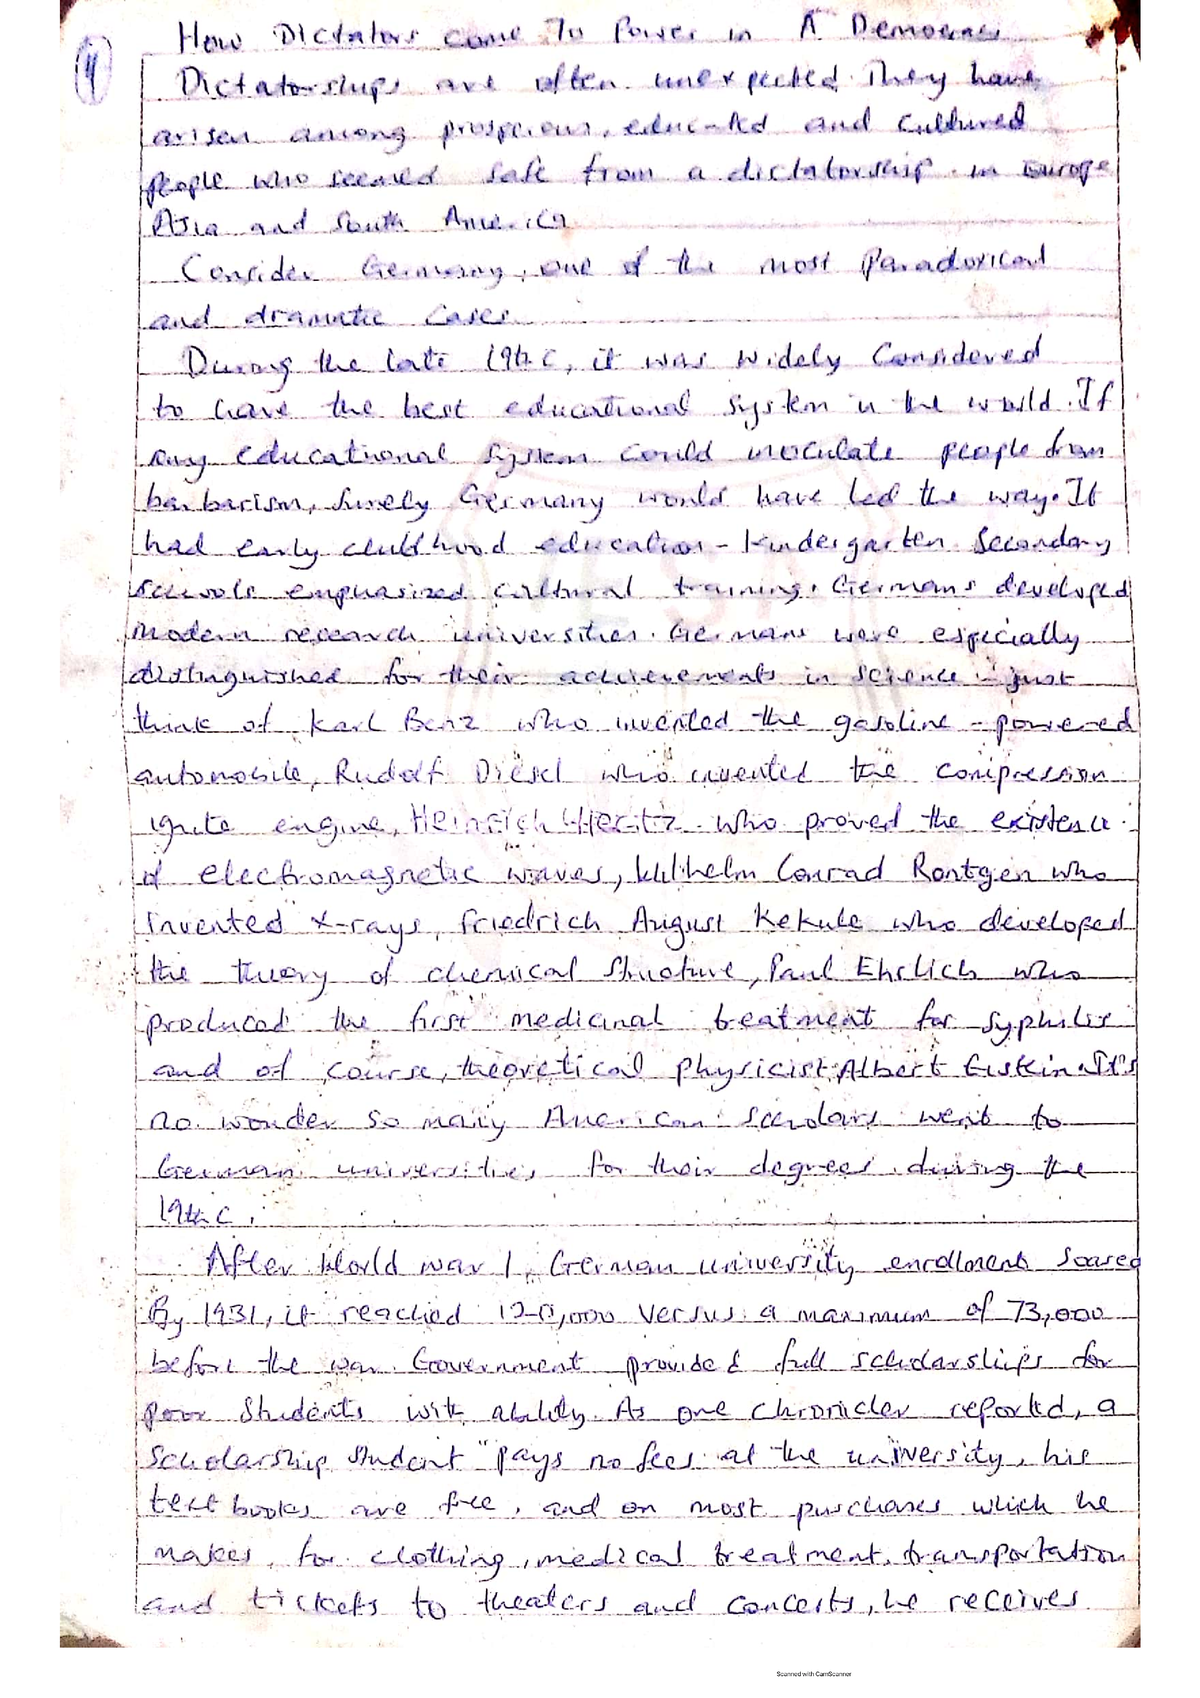 How Dictators come To Power in A Democracy
4
Dictatorships are often unexpected. They have
arisen among prosperous, educated and cultured
people who seemed safe from a dictatorship in Europe
Asia and South America
Consider Germany, one of the most Paradoxical
and dramatic cases
During the late 19th C, it was widely considered
to have the best educational system in the world. If
any educational system could inoculate people from
barbarism, surely Germany would have led the way. It
had early childhood education - kindergarten Secondary
schools emphasized cultural training. Germans developed
modern research universities. Germans were especially
distinguished for their achievements in science - just
think of Karl Benz who invented the gasoline - powered
automobile, Rudolf Diesel who invented the compression
ignite engine, Heinrich Hertz who proved the existence
of electromagnetic waves, Wilhelm Conrad Rontgen who
invented x-rays, Friedrich August Kekule who developed
the theory of chemical structure, Paul Ehrlich who
produced the first medicinal treatment for syphilis
and of course, theoretical physicist Albert It's
no wonder so many American scholars went to
German universities for their degrees during the
19th C.
After World war 1, German university enrollment soared
By 1931, it reached 120,000 versus a maximum of 73,000
before the war. Government provided full scholarships for
poor students with ability. As one chronicler reported, a
scholarship student "pays no fees at the university, his
textbooks are free, and on most purchases which he
makes, for clothing, medical treatment, transportation
and tickets to theaters and concerts, he receives
Scanned with CamScanner